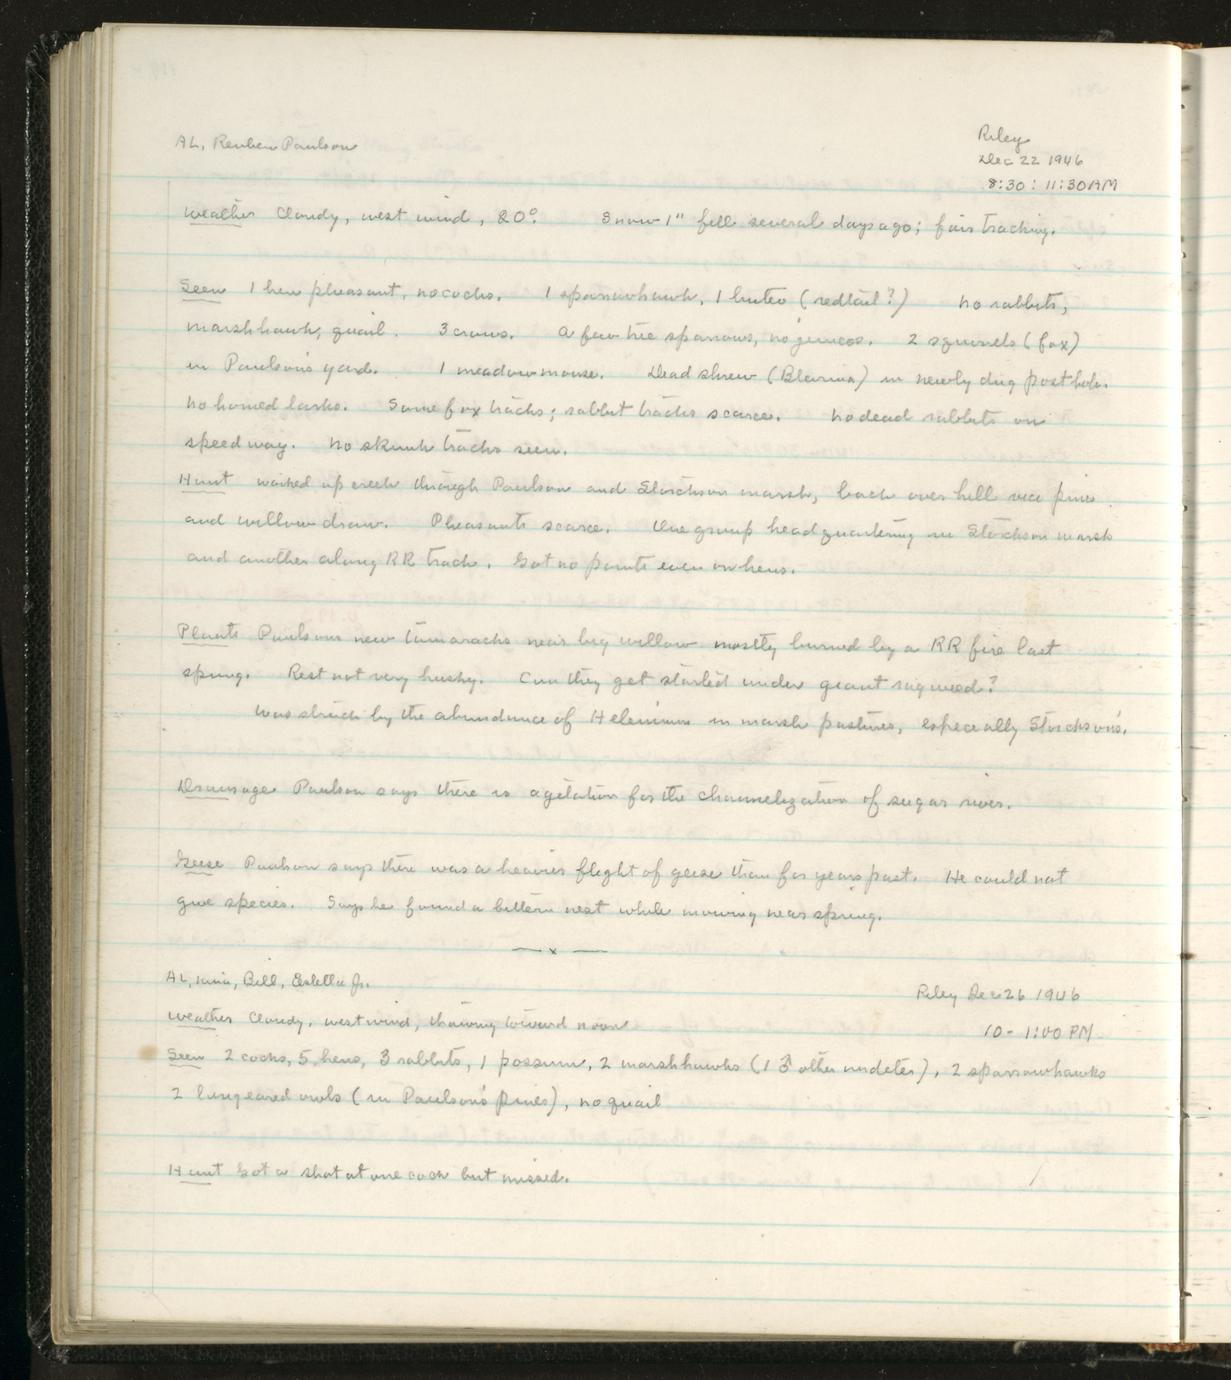 AL, Reuben Paulson
Riley
Dec 22 1946
8:30 : 11:30 AM
Weather Cloudy, west wind, 20°. Snow 1" fell several days ago; fair tracking.
Seen 1 hen pheasant, no cocks. 1 sparrowhawk, 1 buteo (redtail?) No rabbits,
marshhawk, quail. 3 crows. A few tree sparrows, no juncos. 2 squirrels (fox)
in Paulson's yard. 1 meadowmouse. Dead shrew (Blarina) in newly dug posthole.
No horned larks. Some fox tracks; rabbit tracks scarce. No dead rabbits on
speedway. No skunk tracks seen.
Hunt worked up creek through Paulson and Storckson marsh, back over hill via pine
and willow draw. Pheasants scarce. One group headquartering in Storckson marsh
and another along RR track. Got no points even on hens.
Plants Paulsons new tamaracks near big willow mostly burned by a RR fire last
spring. Rest not very husky. Can they get started under giant ragweed?
Was struck by the abundance of Helenium in marsh pastures, especially Storckson's.
Drainage Paulson says there is agitation for the channelization of sugar river.
Geese Paulson says there was a heavier flight of geese than for years past. He could not
give species. Says he found a bittern nest while mowing near spring.
— x —
AL, Nina, Bill, Estella Jr.
Riley Dec 26 1946
Weather Cloudy, west wind, thawing toward noon
10 - 1:00 PM
Seen 2 cocks, 5 hens, 3 rabbits, 1 possum, 2 marshhawks (1 ♂ other undeter), 2 sparrowhawks
2 longeared owls (in Paulson's pines), no quail
Hunt Got a shot at one cock but missed.